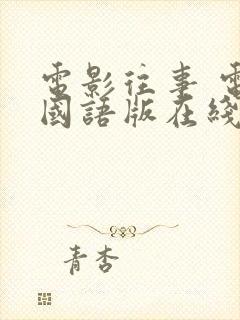 電影往事 電
國語版在綫
青杏